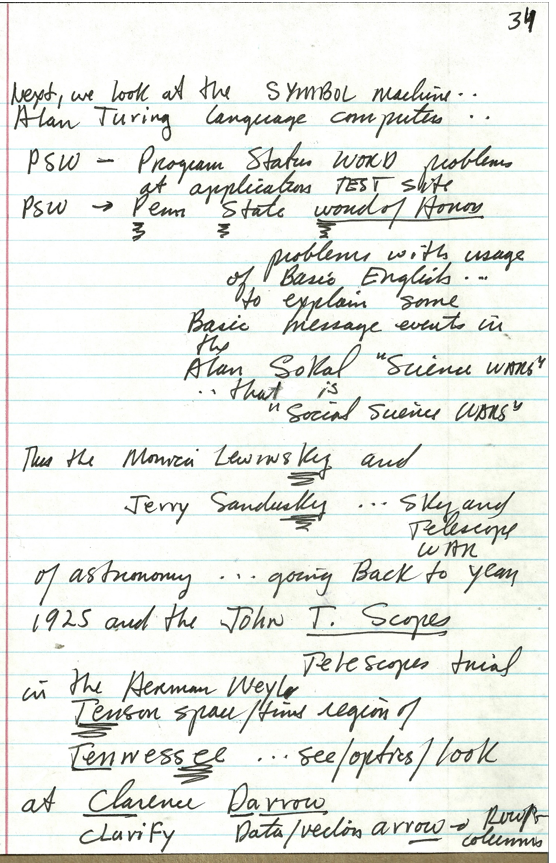 34
Next, we look at the SYMBOL machine..
Alan Turing language computers ..
PSW — Program Status WORD problems
at application TEST site
PSW → Penn State word of Honor
problems with usage
of Basic English...
to explain some
Basic message events in
the
Alan Sokal "Science WARS"
.. that is
"Social Science WARS"
Thus the Monica Lewinsky and
Jerry Sandusky ... Sky and
Telescope
WAR
of astronomy ... going Back to year
1925 and the John T. Scopes
Telescopes trial
in the Herman Weyl
Tensor space/time region of
Tennessee ... see/optics/look
at Clarence Darrow
Clarify Data/vector arrow → Row &
columns